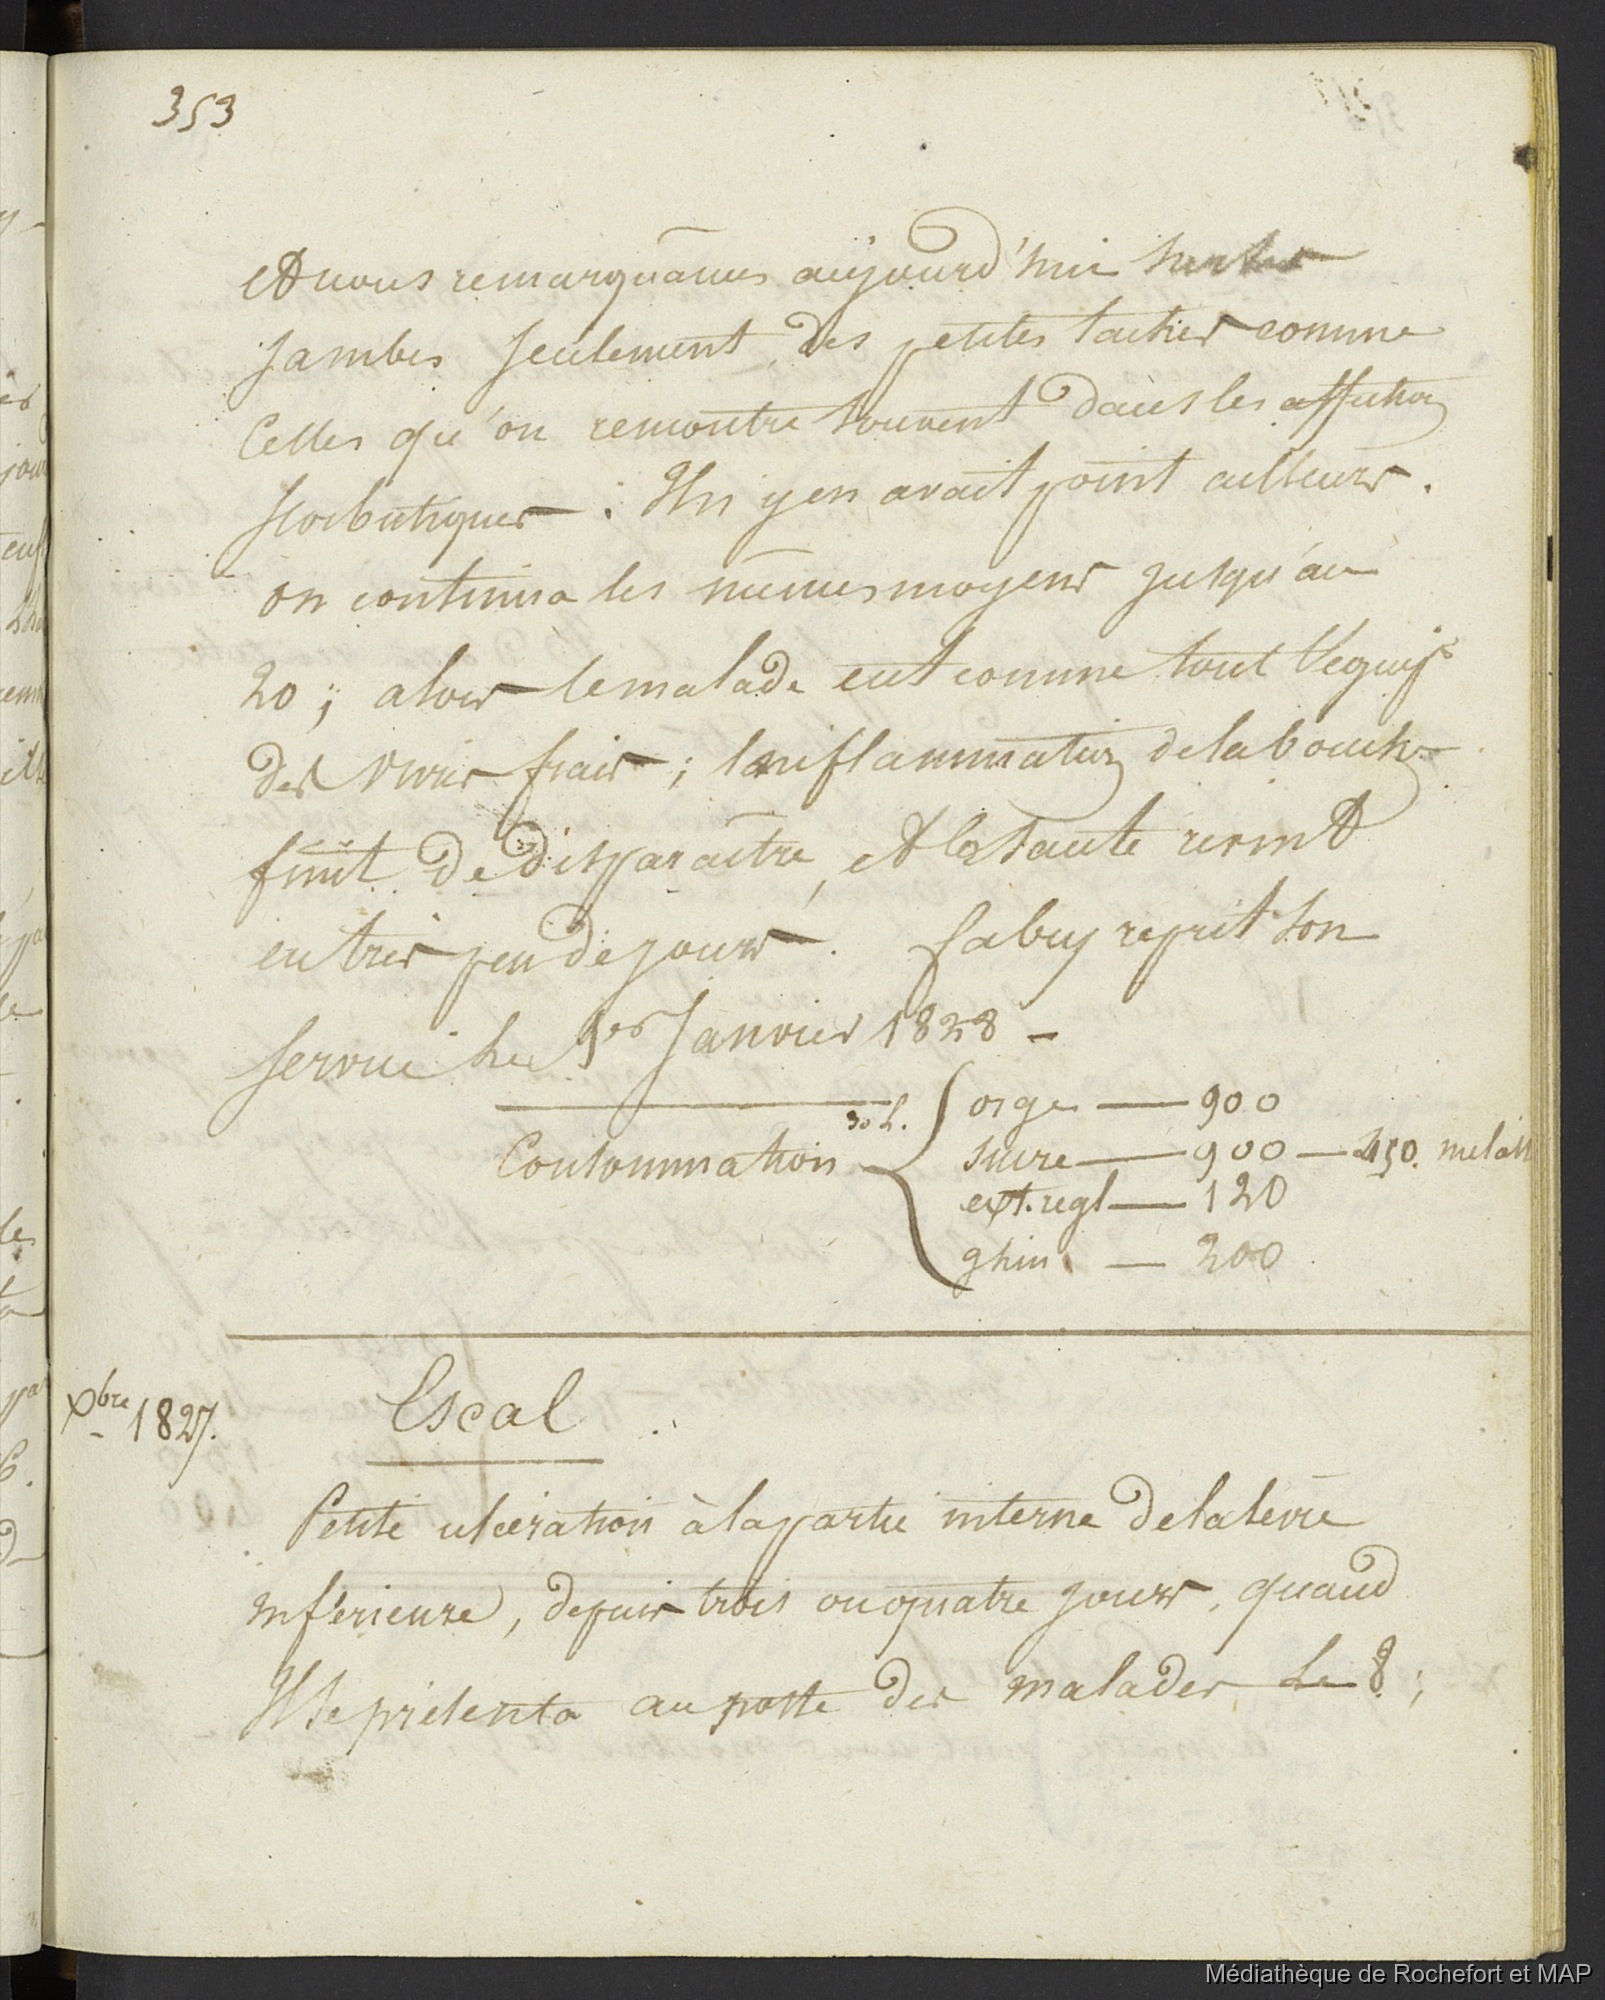 353
et nous remarquâmes aujourd'hui sur les
jambes seulement, des petites taches comme
celles qu'on remontre souvent dans les affection
scorbutiques : Il n'y en avait point ailleurs.
on continua les mêmes moyens jusqu'au
20 ; alors le malade eut comme tout l'equipe
des vivres frais ; l'inflammation de la bouche
finit de disparaître, et la santé revint
en très peu de jours. fabry reprit son
service le 1er Janvier 1828 -
30 L. { orge — 900
Consommation sucre — 900 — 450. melass
ext. regl — 120
ghin — 200
Xbre 1827. Escal
Petite ulcération à la partie interne de la lèvre
inférieure, depuis trois ou quatre jours, quand
Il se présenta au poste des malades le 8 ;
Médiathèque de Rochefort et MAP